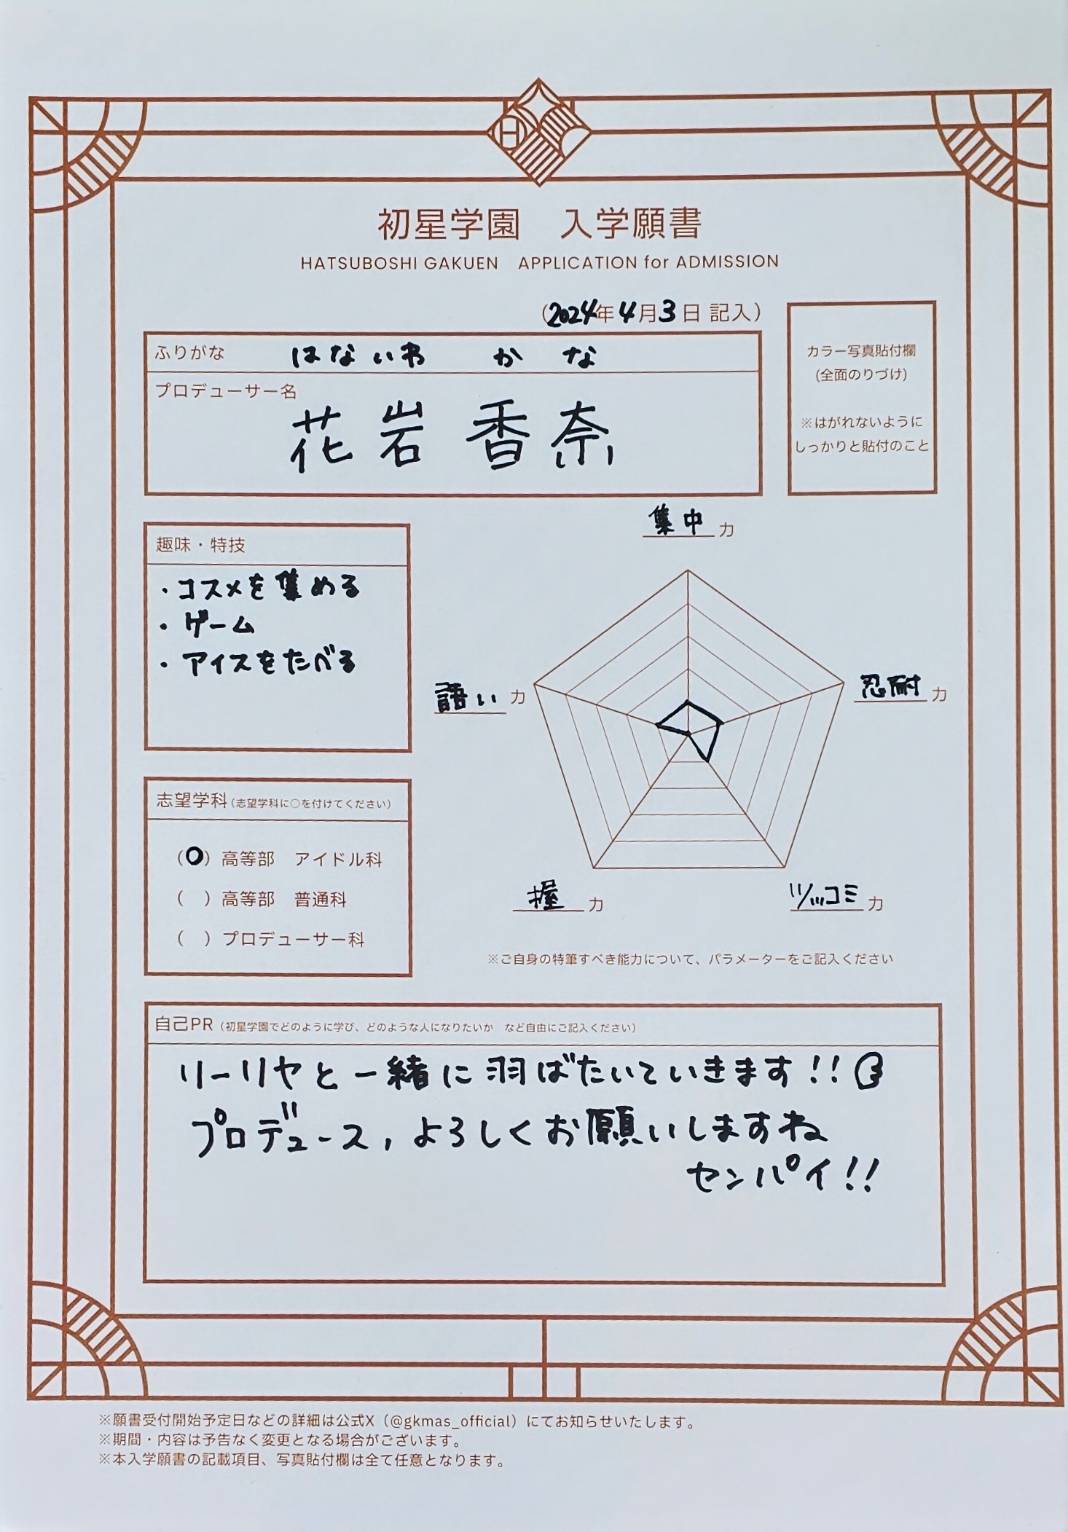 初星学園 入学願書
HATSUBOSHI GAKUEN APPLICATION for ADMISSION
(2024年4月3日 記入)
ふりがな はないわ かな
プロデューサー名
花岩香奈
カラー写真貼付欄
(全面のりづけ)
※はがれないように
しっかりと貼付のこと
趣味・特技
・コスメを集める
・ゲーム
・アイスをたべる
集中力
忍耐力
ツッコミ力
握力
語い力
※ご自身の特筆すべき能力について、パラメーターをご記入ください
志望学科(志望学科に○を付けてください)
(○) 高等部 アイドル科
( ) 高等部 普通科
( ) プロデューサー科
自己PR(初星学園でどのように学び、どのような人になりたいか など自由にご記入ください)
リーリヤと一緒に羽ばたいていきます!!
プロデュース,よろしくお願いしますね
センパイ!!
※願書受付開始予定日などの詳細は公式X(@gkmas_official)にてお知らせいたします。
※期間・内容は予告なく変更となる場合がございます。
※本入学願書の記載項目、写真貼付欄は全て任意となります。